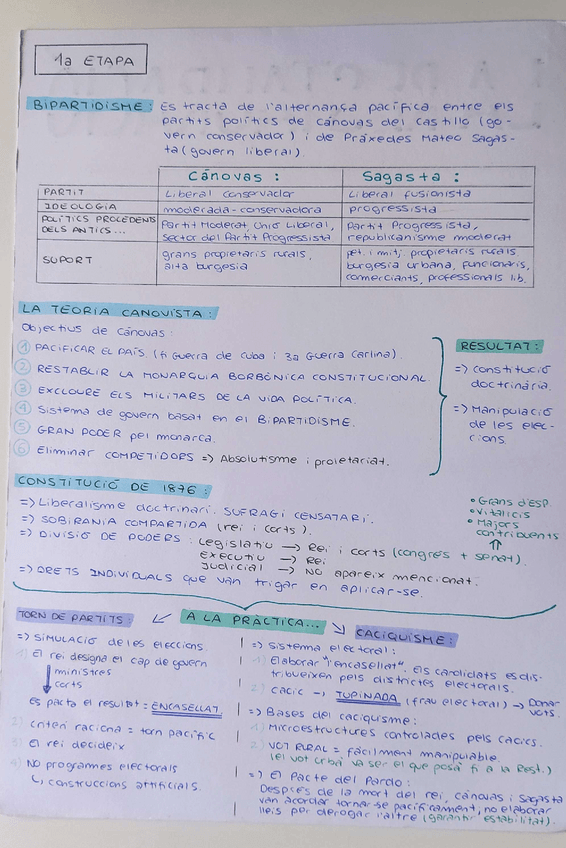 1a ETAPA
BIPARTIDISME: Es tracta de l'alternança pacífica entre els
partits polítics de Cánovas del Castillo (go-
vern conservador) i de Práxedes Mateo Sagas-
ta (govern liberal).
Cánovas: Sagasta:
PARTIT Liberal conservador Liberal fusionista
IDEOLOGIA moderada-conservadora progressista
POLÍTICS PROCEDENTS DELS ANTICS... Partit Moderat, Unió Liberal, Partit Progressista,
sector del Partit Progressista republicanisme moderat
SUPORT grans propietaris rurals, pet. i mitj. propietaris rurals,
alta burgesia burgesia urbana, funcionaris,
comerciants, professionals lib.
LA TEORIA CANOVISTA:
Objectius de Cánovas:
① PACIFICAR EL PAÍS (fi Guerra de Cuba i 3a Guerra Carlina).
② RESTABLIR LA MONARQUIA BORBÒNICA CONSTITUCIONAL.
③ EXCLOURE ELS MILITARS DE LA VIDA POLÍTICA.
④ Sistema de govern basat en el BIPARTIDISME.
⑤ GRAN PODER pel monarca.
⑥ Eliminar COMPETIDORS => Absolutisme i proletariat.
RESULTAT:
=> Constitució
doctrinària.
=> Manipulació
de les elec-
cions.
CONSTITUCIÓ DE 1876:
=> Liberalisme doctrinari. SUFRAGI CENSATARI.
=> SOBIRANIA COMPARTIDA (rei i corts).
=> DIVISIÓ DE PODERS: Legislatiu → Rei i corts (congrés + senat).
Executiu → Rei
Judicial → NO apareix mencionat.
=> DRETS INDIVIDUALS que van trigar en aplicar-se.
• Grans d'ESP.
• Vitalicis
• Majors
contribuents
A LA PRÀCTICA...
TORN DE PARTITS:
=> SIMULACIÓ de les eleccions.
1) El rei designa el cap de govern
ministres
corts
Es pacta el resultat = ENCASELLAT.
2) criteri raciona = torn pacífic
3) El rei decideix
4) NO programes electorals
↳ construccions artificials.
CACIQUISME:
=> Sistema electoral:
1) Elaborar "l'encasellat". Els candidats es dis-
tribueixen pels districtes electorals.
2) Cacic → TUPINADA (frau electoral) → Donar
vots.
=> Bases del caciquisme:
1) Microestructures controlades pels cacics.
2) VOT RURAL = fàcilment manipulable.
(el vot urbà va ser el que posà fi a la Rest.)
=> El Pacte del Pardo:
Després de la mort del rei, Cánovas i Sagasta
van acordar tornar-se pacíficament, no elaborar
lleis per derogar l'altre (garantir estabilitat).